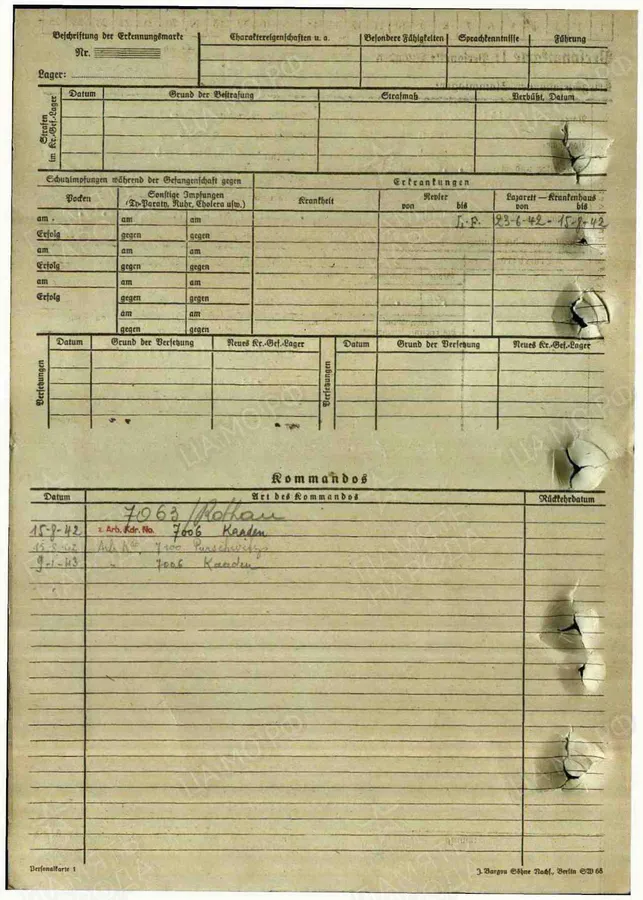 Beschriftung der Erkennungsmarke
Nr.
Lager:
Charaktereigenschaften u. a.
Besondere Fähigkeiten
Sprachkenntnisse
Führung
Strafen im Kr.-Gef.-Lager
Datum
Grund der Bestrafung
Strafmaß
Verbüßt, Datum
Schutzimpfungen während der Gefangenschaft gegen
Erkrankungen
Pocken
Sonstige Impfungen
(Ty.-Paraty., Ruhr, Cholera usw.)
Krankheit
Revier
von bis
Lazarett — Krankenhaus
von bis
am am am
23-6-42 - 15-8-42
Erfolg gegen gegen
am am am
Erfolg gegen gegen
am am am
Erfolg gegen gegen
am am
gegen gegen
Versetzungen
Datum
Grund der Versetzung
Neues Kr.-Gef.-Lager
Versetzungen
Datum
Grund der Versetzung
Neues Kr.-Gef.-Lager
Kommandos
Datum
Art des Kommandos
Rückkehrdatum
7063 /Rothau
15-8-42 z. Arb. Kdr. No. 7006 Kaaden
7100 Purschwitz
9-1-43 " 7006 Kaaden
Personalkarte 1
J. Bargou Söhne Nachf., Berlin SW 68